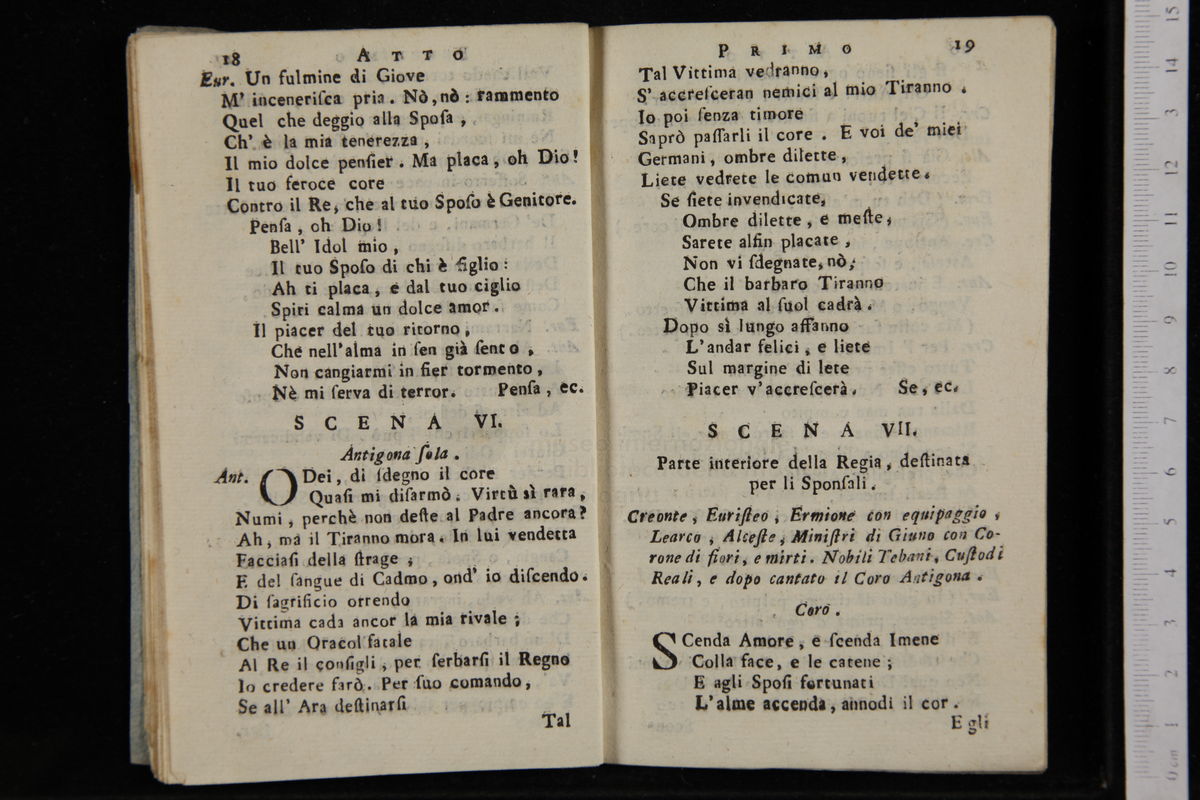 18 ATTO
Eur. Un fulmine di Giove
M' inceneriſca pria. Nò, nò: rammento
Quel che deggio alla Spoſa,
Ch' è la mia tenerezza,
Il mio dolce penſier. Ma placa, oh Dio!
Il tuo feroce core
Contro il Re, che al tuo Spoſo è Genitore.
Penſa, oh Dio!
Bell' Idol mio,
Il tuo Spoſo di chi è figlio:
Ah ti placa, e dal tuo ciglio
Spiri calma un dolce amor.
Il piacer del tuo ritorno,
Che nell'alma in ſen già ſento,
Non cangiarmi in fier tormento,
Nè mi ſerva di terror. Penſa, ec.
SCENA VI.
Antigona ſola.
Ant. ODei, di ſdegno il core
Quaſi mi diſarmò. Virtù sì rara,
Numi, perchè non deſte al Padre ancora?
Ah, ma il Tiranno mora. In lui vendetta
Facciaſi della ſtrage;
E del ſangue di Cadmo, ond' io diſcendo.
Di ſagrificio orrendo
Vittima cada ancor la mia rivale;
Che un Oracol fatale
Al Re il conſigli, per ſerbarſi il Regno
Io credere farò. Per ſuo comando,
Se all' Ara deſtinarſi
Tal
PRIMO 19
Tal Vittima vedranno,
S' accreſceran nemici al mio Tiranno.
Io poi ſenza timore
Saprò paſſarli il core. E voi de' miei
Germani, ombre dilette,
Liete vedrete le comun vendette.
Se ſiete invendicate,
Ombre dilette, e meſte,
Sarete alfin placate,
Non vi ſdegnate, nò;
Che il barbaro Tiranno
Vittima al ſuol cadrà.
Dopo sì lungo affanno
L'andar felici, e liete
Sul margine di lete
Piacer v'accreſcerà. Se, ec.
SCENA VII.
Parte interiore della Regia, deſtinata
per li Sponſali.
Creonte, Euriſteo, Ermione con equipaggio,
Learco, Alceſte, Miniſtri di Giuno con Co-
rone di fiori, e mirti. Nobili Tebani, Cuſtodi
Reali, e dopo cantato il Coro Antigona.
Coro.
SCenda Amore, e ſcenda Imene
Colla face, e le catene;
E agli Spoſi fortunati
L'alme accenda, annodi il cor.
E gli